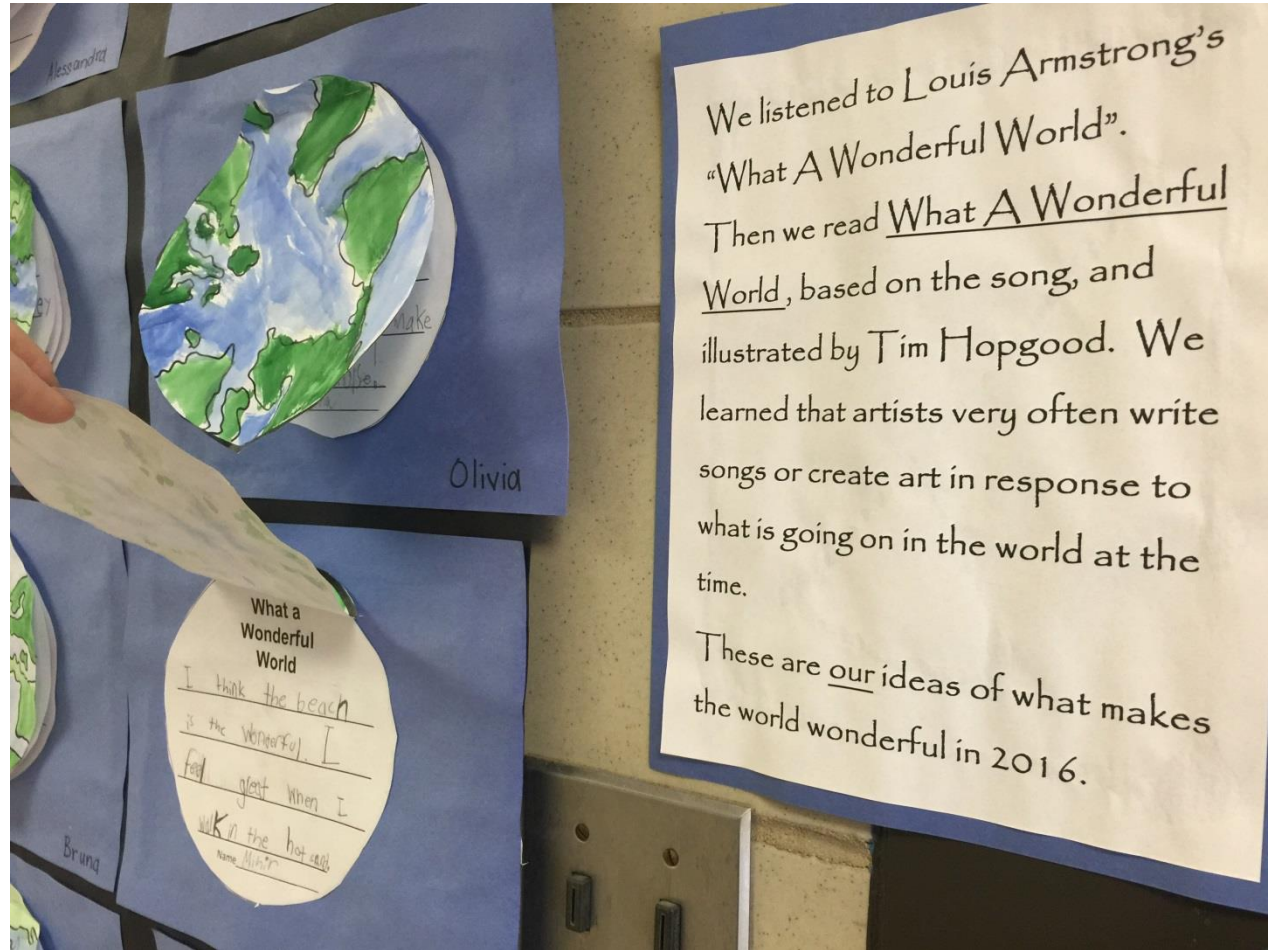 Alessandra
Make
Olivia
What a
Wonderful
World
I think the beach
is the wonderful. I
feel great when I
walk in the hot sand.
Name Mihir
Bruna
We listened to Louis Armstrong's
"What A Wonderful World".
Then we read What A Wonderful
World, based on the song, and
illustrated by Tim Hopgood. We
learned that artists very often write
songs or create art in response to
what is going on in the world at the
time.
These are our ideas of what makes
the world wonderful in 2016.